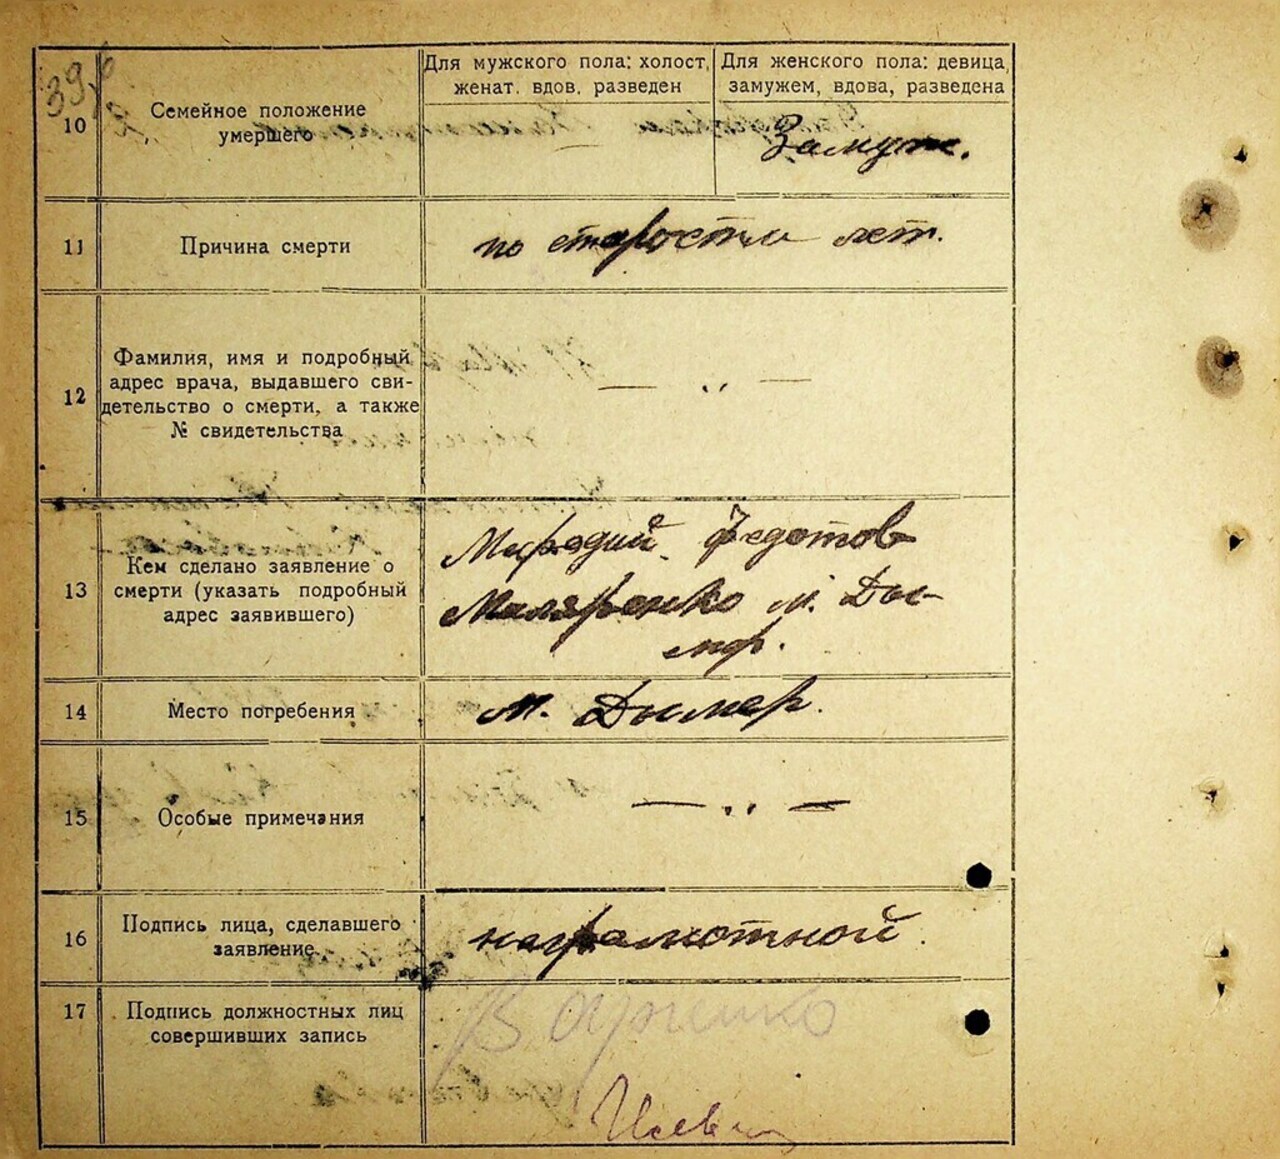 Для мужского пола: холост,
женат. вдов. разведен
Для женского пола: девица,
замужем, вдова, разведена
10
Семейное положение
умершего
Замуж.
11
Причина смерти
по старости лет.
12
Фамилия, имя и подробный
адрес врача, выдавшего сви-
детельство о смерти, а также
№ свидетельства
13
Кем сделано заявление о
смерти (указать подробный
адрес заявившего)
Федотов
Маляренко м. Ды-
мер.
14
Место погребения
м. Дымер.
15
Особые примечания
16
Подпись лица, сделавшего
заявление
неграмотной.
17
Подпись должностных лиц
совершивших запись